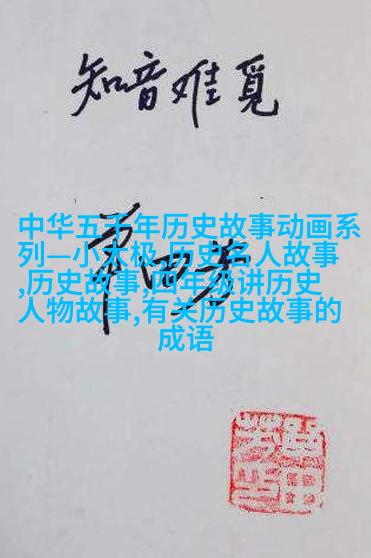 知音难觅
中华五千年历史故事动画系
列—小太极,历史名人故事
,历史故事,四年级讲历史
人物故事,有关历史故事的
成语